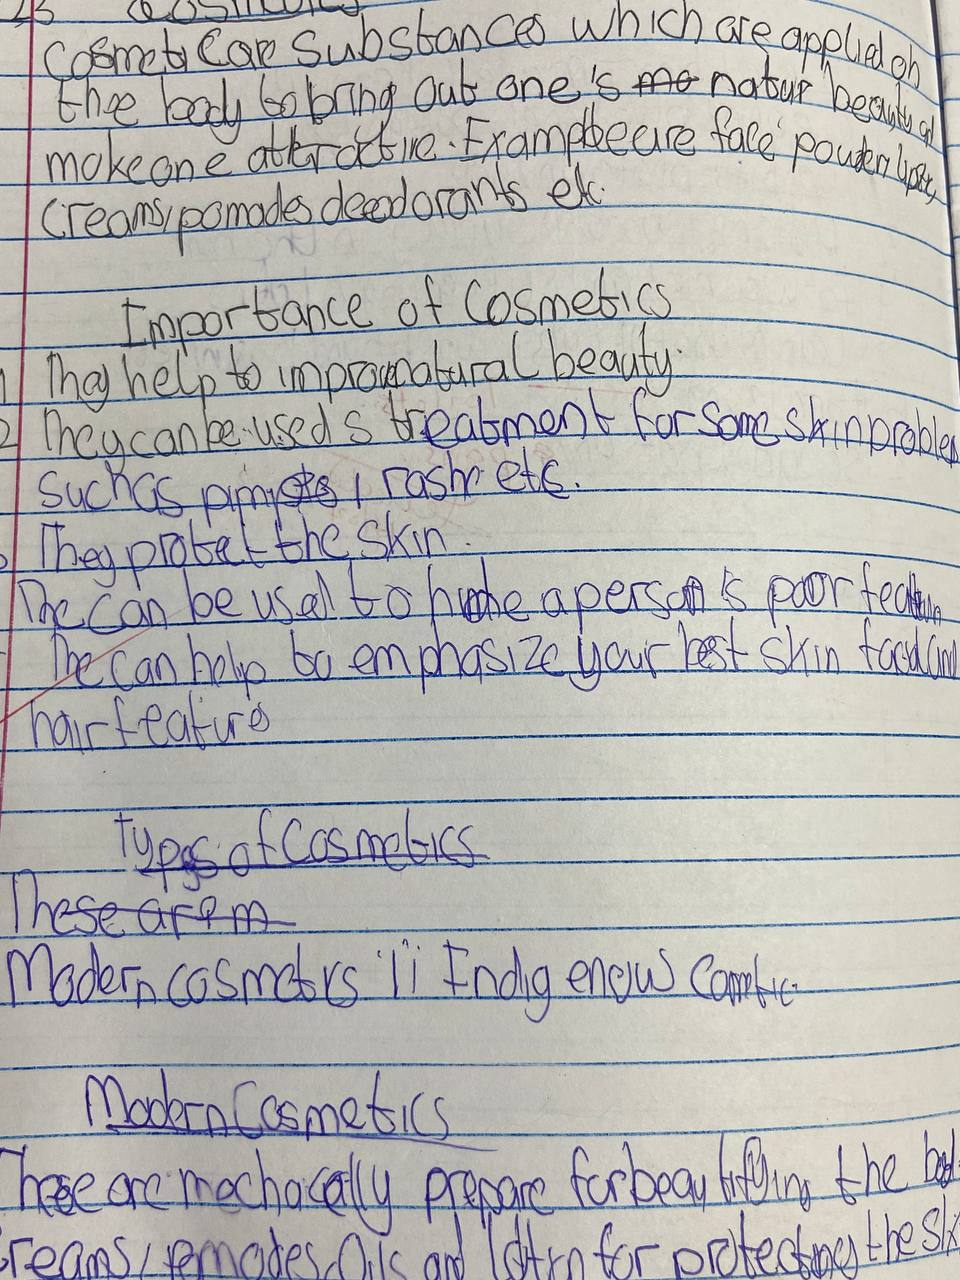 Cosmetics
Cosmetic are substances which are applied on
the body to bring out one's natur beauty and
make one attractive. Example are face powder,
Creams, pomades, deodorants etc.
Importance of Cosmetics
1 They help to improve natural beauty.
2 They can be used s treatment for some skin problem
such as , rash etc.
They protect the skin.
The can be used to a person's poor
The can help to emphasize your best skin
hair feature
Types of Cosmetics
These are m
Modern cosmetics ii Indigenous
Modern Cosmetics
These are prepare for beautifying the
creams, pomades, Oils and for protecting the